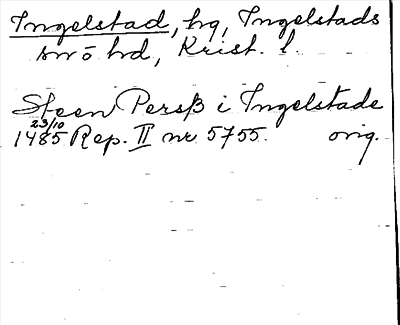 Ingelstad, hg, Ingelstads
smö hd, Krist. l.
Steen Persß i Ingelstade
23/10
1485 Rep. II nr 5755. orig.